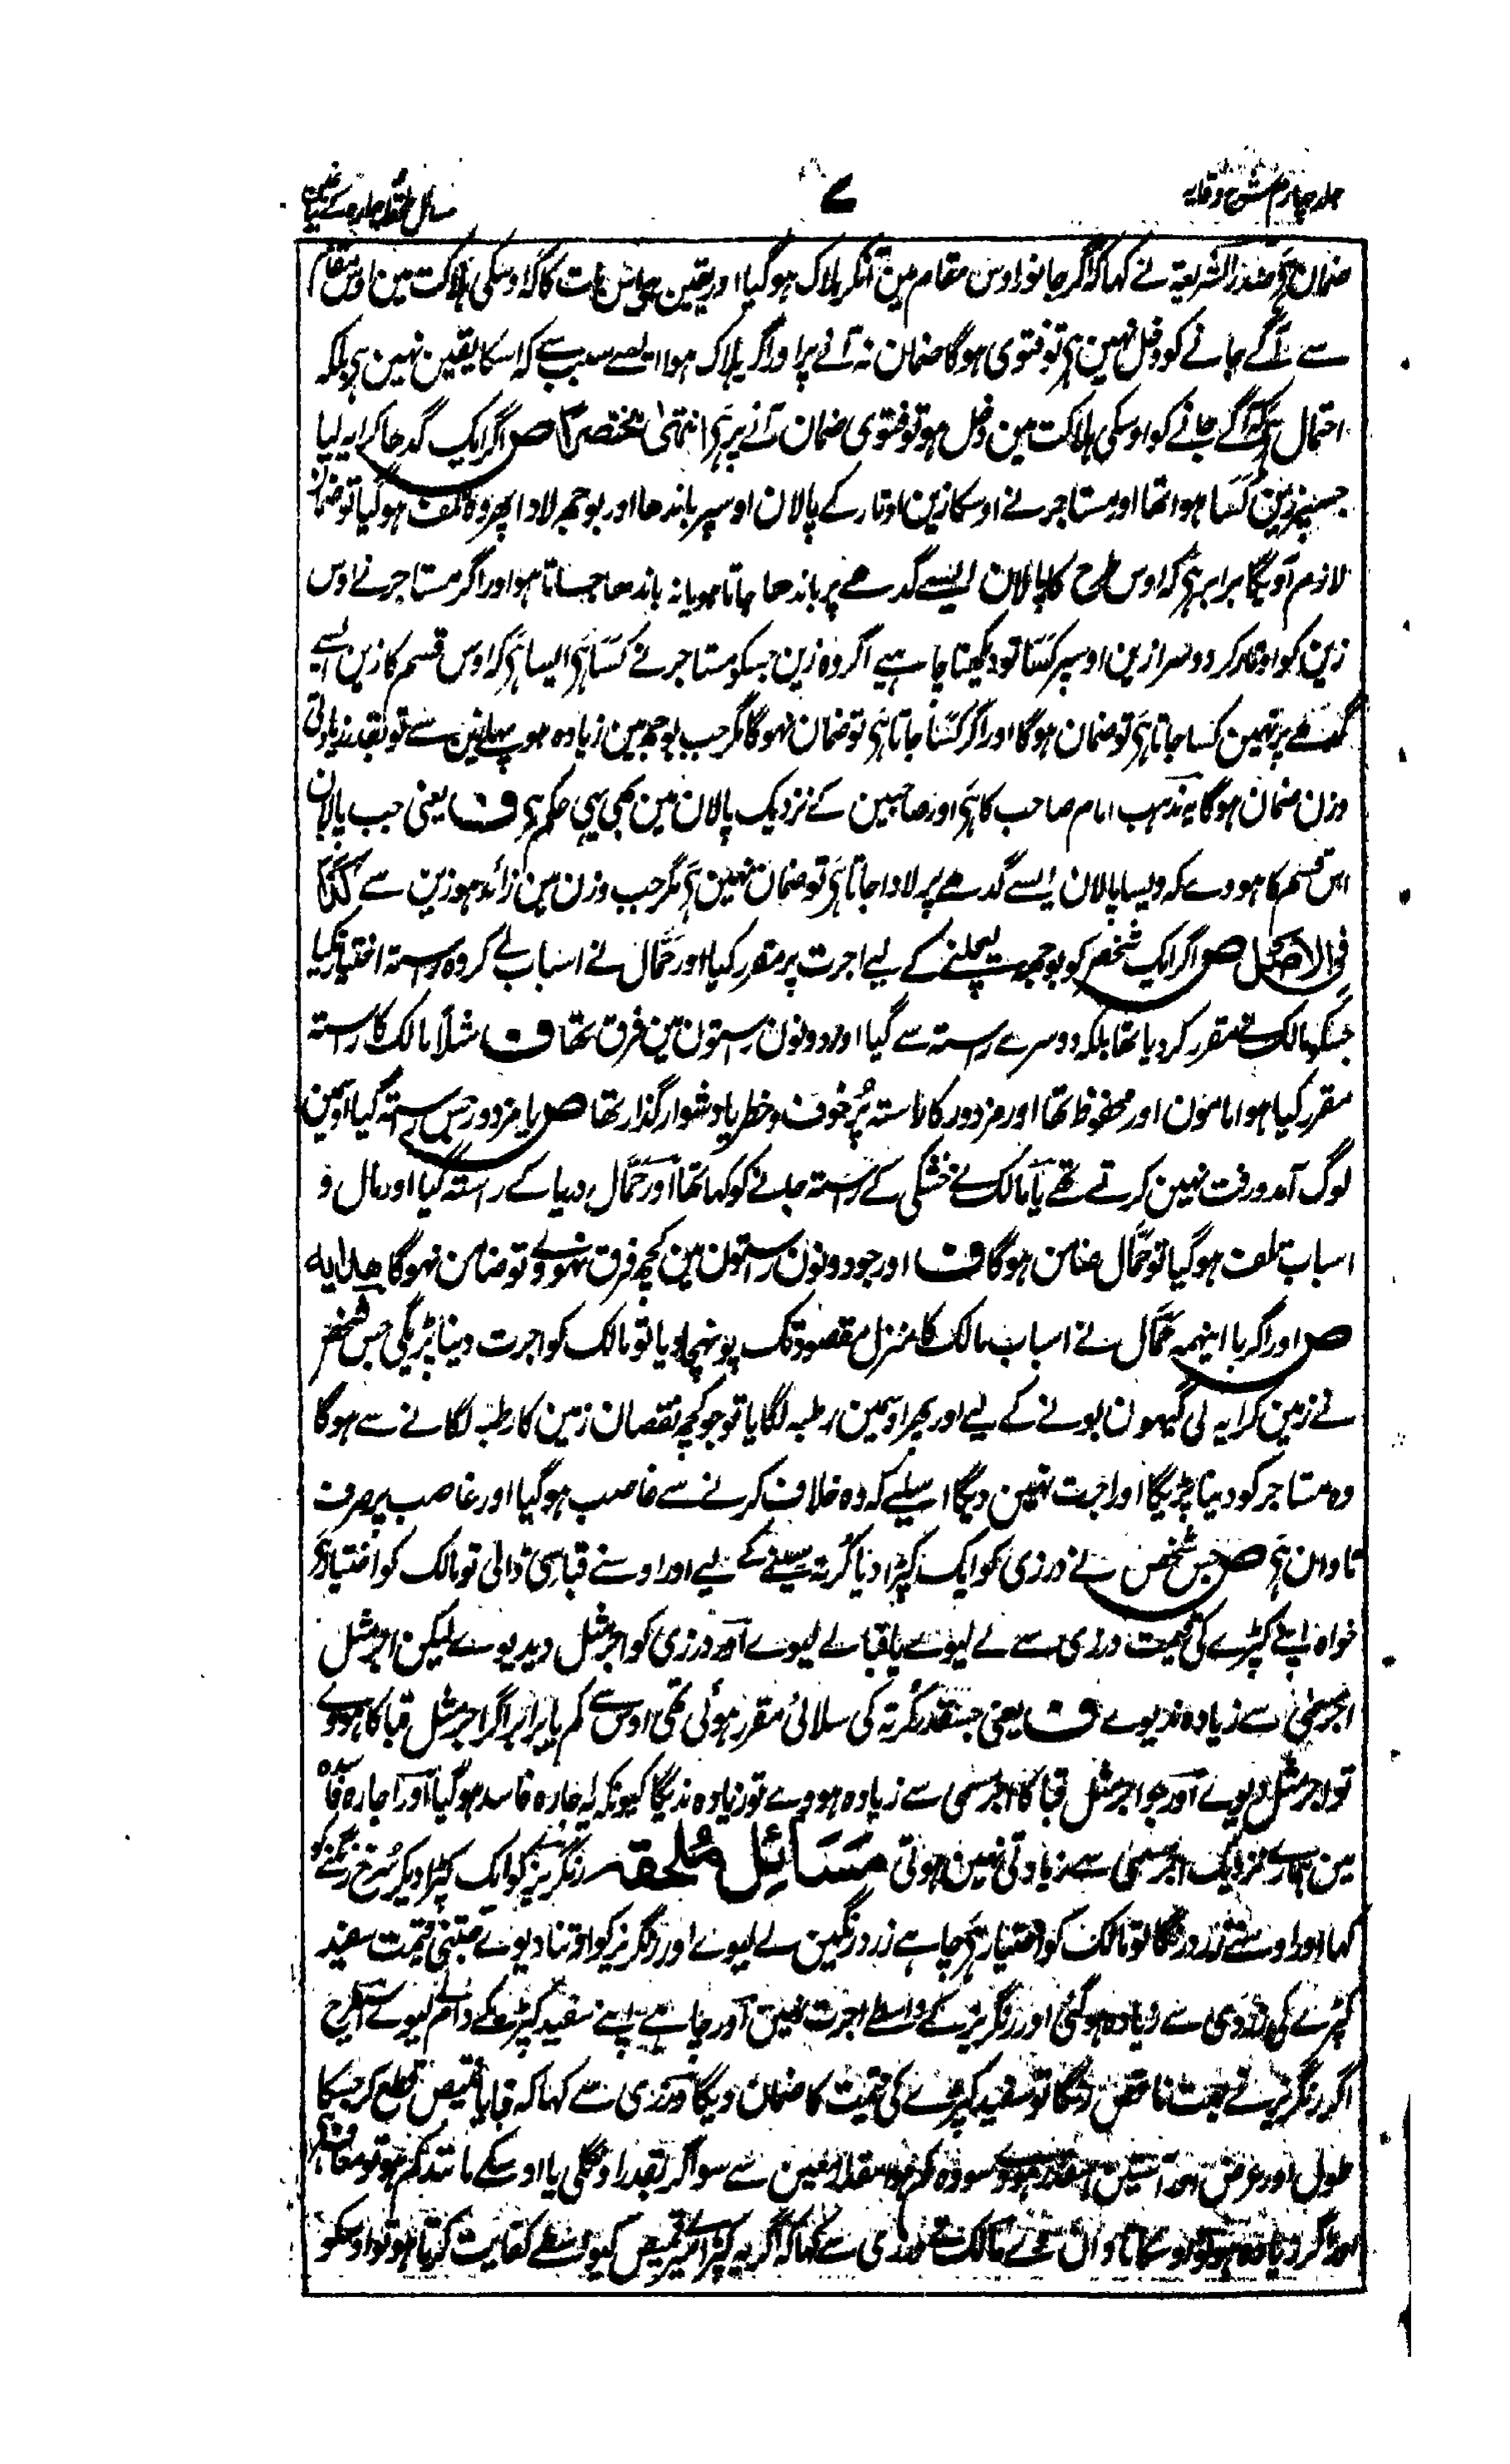 جلد چہارم شرح وقایہ
۷
مسائل ملحقہ اجارہ کے بیان
ضمان ہی صدر الشریعۃ نے کہا کہ اگر جانور اوس مقام مین آنکر ہلاک ہو گیا اور یقین ہی اس بات کا کہ اوسکی ہلاکت مین اوس مقام
سے آگے جانے کو دخل نہین ہی تو فتوی ہوگا ضمان نہ آنے پر اور اگر ہلاک ہوا ایسے سبب سے کہ اسکا یقین نہین ہی بلکہ
احتمال ہی کہ آگے جانے کو اوسکی ہلاکت مین دخل ہو تو فتوی ضمان آنے پر ہی انتہیٰ مختصراً ص اگر ایک گدھا کرایہ لیا
جسپر زین کسا ہوا تھا اور مستاجر نے اوسکا زین اوتار کے پالان اوسپر باندھا اور بوجھ لادا پھر وہ تلف ہو گیا تو ضمان
لازم آویگا برابر ہی کہ اوس طرح کا پالان ایسے گدھے پر باندھا جاتا ہو یا نہ باندھا جاتا ہو اور اگر مستاجر نے اوس
زین کو اوتار کر دوسرا زین اوسپر کسا تو دیکھنا چاہیے اگر وہ زین جسکو مستاجر نے کسا ہی ایسا ہی کہ اوس قسم کا زین ایسے
گدھے پر نہین کسا جاتا ہی تو ضمان ہوگا اور اگر کسا جاتا ہی تو ضمان نہوگا مگر جب بوجھ مین زیادہ ہو پہلے زین سے تو بقدر زیادتی
وزن ضمان ہوگا یہ مذہب امام صاحب کا ہی اور صاحبین کے نزدیک پالان مین بھی یہی حکم ہی ف یعنی جب پالان
اس قسم کا ہووے کہ ویسا پالان ایسے گدھے پر لادا جاتا ہی تو ضمان نہین ہی مگر جب وزن مین زائد ہو زین سے کذا
فی الاصل ص اگر ایک شخص کو بوجھ لیجانے کے لیے اجرت پر مقرر کیا اور حمّال نے اسباب لے کر وہ رستہ اختیار نکیا
جسکو مالک نے مقرر کر دیا تھا بلکہ دوسرے رستہ سے گیا اور دونون رستون مین فرق تھا ف مثلاً مالک کا رستہ
مقرر کیا ہوا مامون اور محفوظ تھا اور مزدور کا راستہ پُر خوف و خطر یا دشوار گذار تھا ص یا مزدور جس رستہ گیا اوسمین
لوگ آمد و رفت نہین کرتے تھے یا مالک نے خشکی کے رستہ جانے کو کہا تھا اور حمّال دریا کے راستہ گیا اور مال و
اسباب تلف ہو گیا تو حمّال ضامن ہوگا ف اور جو دونون رستون مین کچھ فرق نہووے تو ضامن نہوگا ھدایہ
ص اور اگر با اینہمہ حمّال نے اسباب مالک کا منزل مقصود تک پہونچا دیا تو مالک کو اجرت دینا پڑیگی جس شخص
نے زمین کرایہ لی گیہون بونے کے لیے اور پھر اوسمین رطبہ لگایا تو جو کچھ نقصان زمین کا رطبہ لگانے سے ہوگا
وہ مستاجر کو دینا پڑیگا اور اجرت نہین دیگا اسلیے کہ وہ خلاف کرنے سے غاصب ہو گیا اور غاصب پر صرف
تاوان ہی ص جس شخص نے درزی کو ایک کپڑا دیا کُرتہ سینے کے لیے اور اوسنے قبا سی ڈالی تو مالک کو اختیار ہی
خواہ اپنے کپڑے کی قیمت درزی سے لے لیوے یا قبا لے لیوے اور درزی کو اجر مثل دیدیوے لیکن اجر مثل
اجر مسمّی سے زیادہ ندیوے ف یعنی جسقدر کُرتہ کی سلائی مقرر ہوئی تھی اوس سے کم یا برابر اگر اجر مثل قبا کا ہووے
تو اجر مثل دیوے اور جو اجر مثل قبا کا اجر مسمی سے زیادہ ہووے تو زیادہ ندیگا کیونکہ یہ اجارہ فاسد ہو گیا اور اجارہ فاسدہ
مین ہمارے نزدیک اجر مسمی سے زیادتی نہین ہوتی مَسَائِل مُلحقہ رنگریز کو ایک کپڑا دیکر سُرخ رنگنے کو
کہا اور اوسنے زرد رنگا تو مالک کو اختیار ہی چاہے زرد رنگین لے لیوے اور رنگریز کو اوتنا دیوے جتنی قیمت سفید
کپڑے کی زردی سے زیادہ ہو گئی اور رنگریز کے واسطے اجرت نہین اور چاہے اپنے سفید کپڑے کے دام لیوے اسیطرح
اگر رنگریز نے بہت ناقص رنگا تو سفید کپڑے کی قیمت کا ضمان دیگا درزی سے کہا کہ قبا یا قمیص قطع کر جسکا
طول اور عرض اور آستین اسقدر ہووے سو وہ کم ہوا مقدار معین سے سو اگر بقدر اونگلی یا اوسکے مانند کم ہو تو معاف ہی
اور اگر زیادہ ہو تو اوسکا تاوان لے مالک نے درزی سے کہا کہ اگر یہ کپڑا میرے قمیص کیواسطے کفایت کرتا ہو تو اوسکو